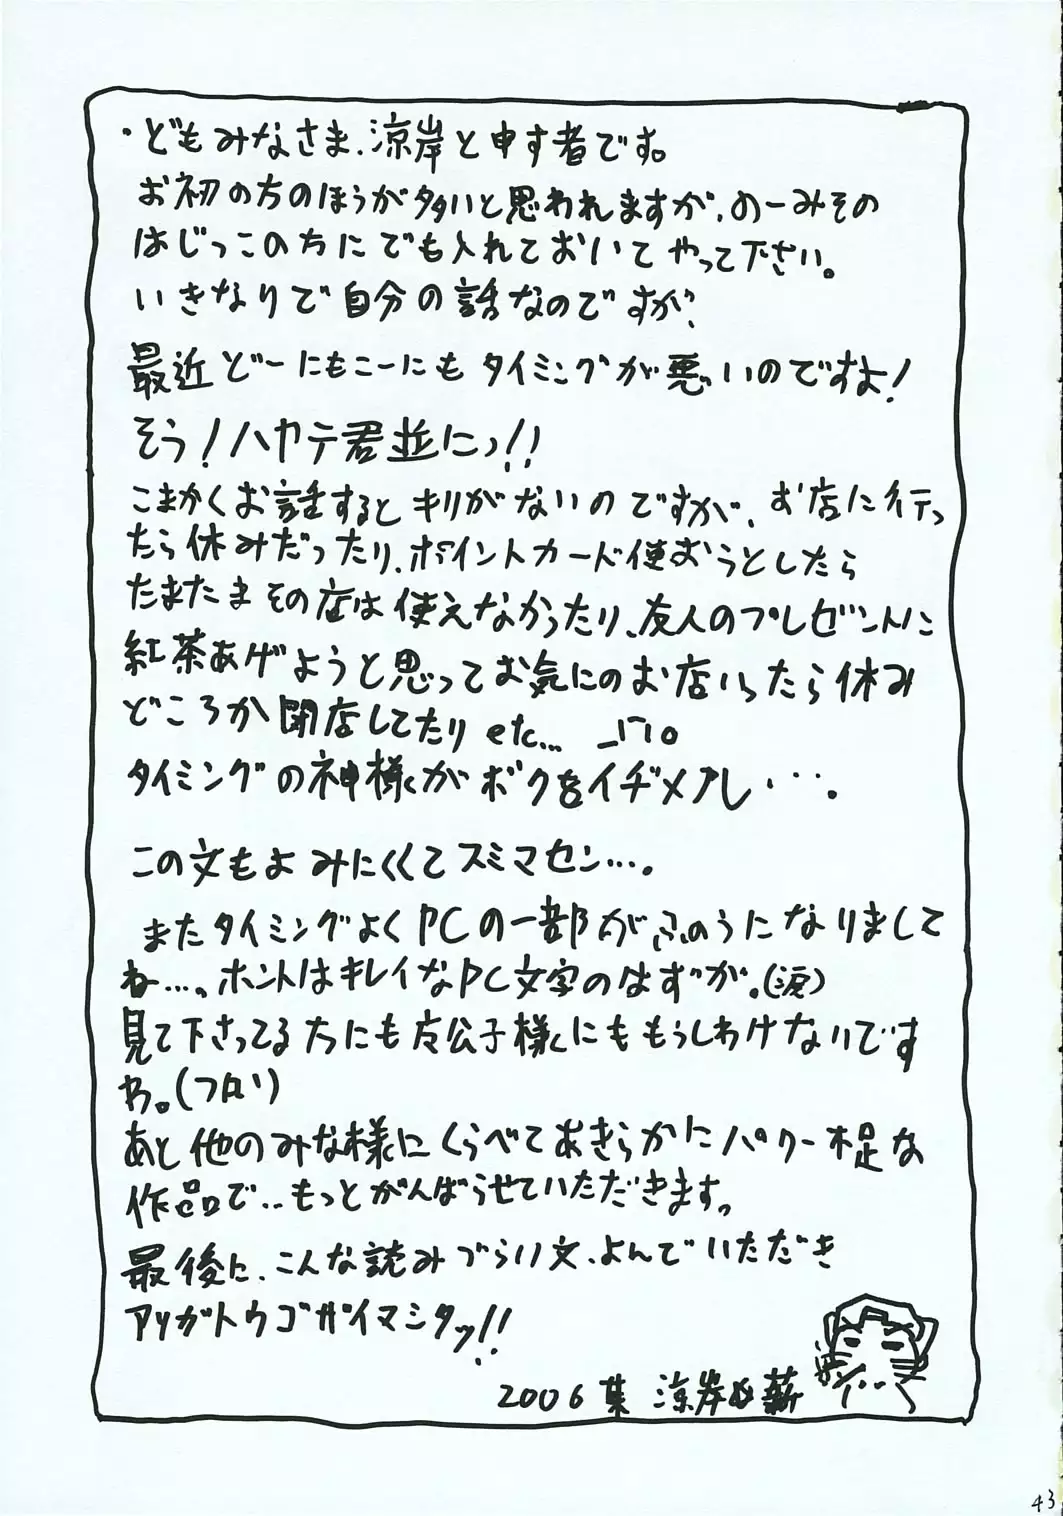 ・どもみなさま、涼岸と申す者です。
お初の方のほうが多いと思われますが、のーみその
はじっこの方にでも入れておいてやって下さい。
いきなりで自分の話なのですが、
最近どーにもこーにもタイミングが悪いのですよ！
そう！ハヤテ君並にっ!!
こまかくお話するとキリがないのですが、お店に行っ
たら休みだったり、ポイントカード使おうとしたら
たまたまその店は使えなかったり、友人のプレゼントに
紅茶あげようと思ってお気にのお店いったら休み
どころか閉店してたりetc... _|￣|○
タイミングの神様がボクをイヂメル・・・.
この文もよみにくくてスミマセン・・・。
またタイミングよくPCの一部がふのうになりまして
ね・・・。ホントはキレイなPC文字のはずが。(涙)
見て下さってる方にも友公子様にももうしわけないです
わ。(フロリ)
あと他のみな様にくらべてあきらかにパワー不足な
作品で‥もっとがんばらせていただきます。
最後に、こんな読みづらい文、よんでいただき
アリガトウゴザイマシタッ!!
2006 涼岸 薪
43